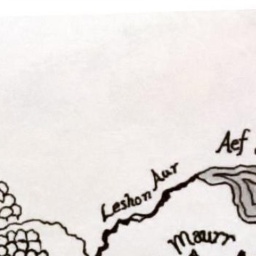 Aef
Leshon Aur
Maurr